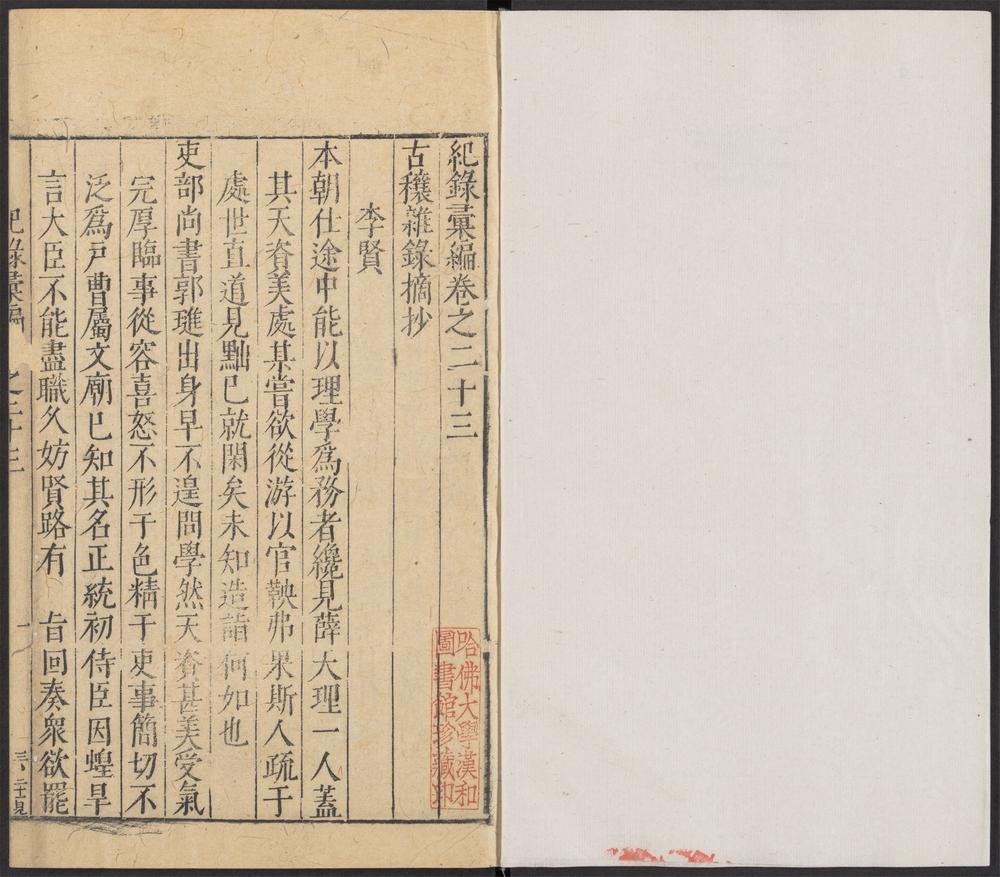 紀錄彙編卷之二十三
古穰雜錄摘抄
李賢
本朝仕途中能以理學爲務者纔見薛大理一人蓋
其天資美處某嘗欲從游以官鞅弗果斯人疏于
處世直道見黜已就閑矣未知造詣何如也
吏部尚書郭璡出身早不遑問學然天資甚美受氣
完厚臨事從容喜怒不形于色精于吏事簡切不
泛爲戶曹屬文廟已知其名正統初侍臣因蝗旱
言大臣不能盡職久妨賢路有 旨回奏衆欲罷
紀錄彙編 之二十三 一
哈佛大學漢和
圖書館珍藏印